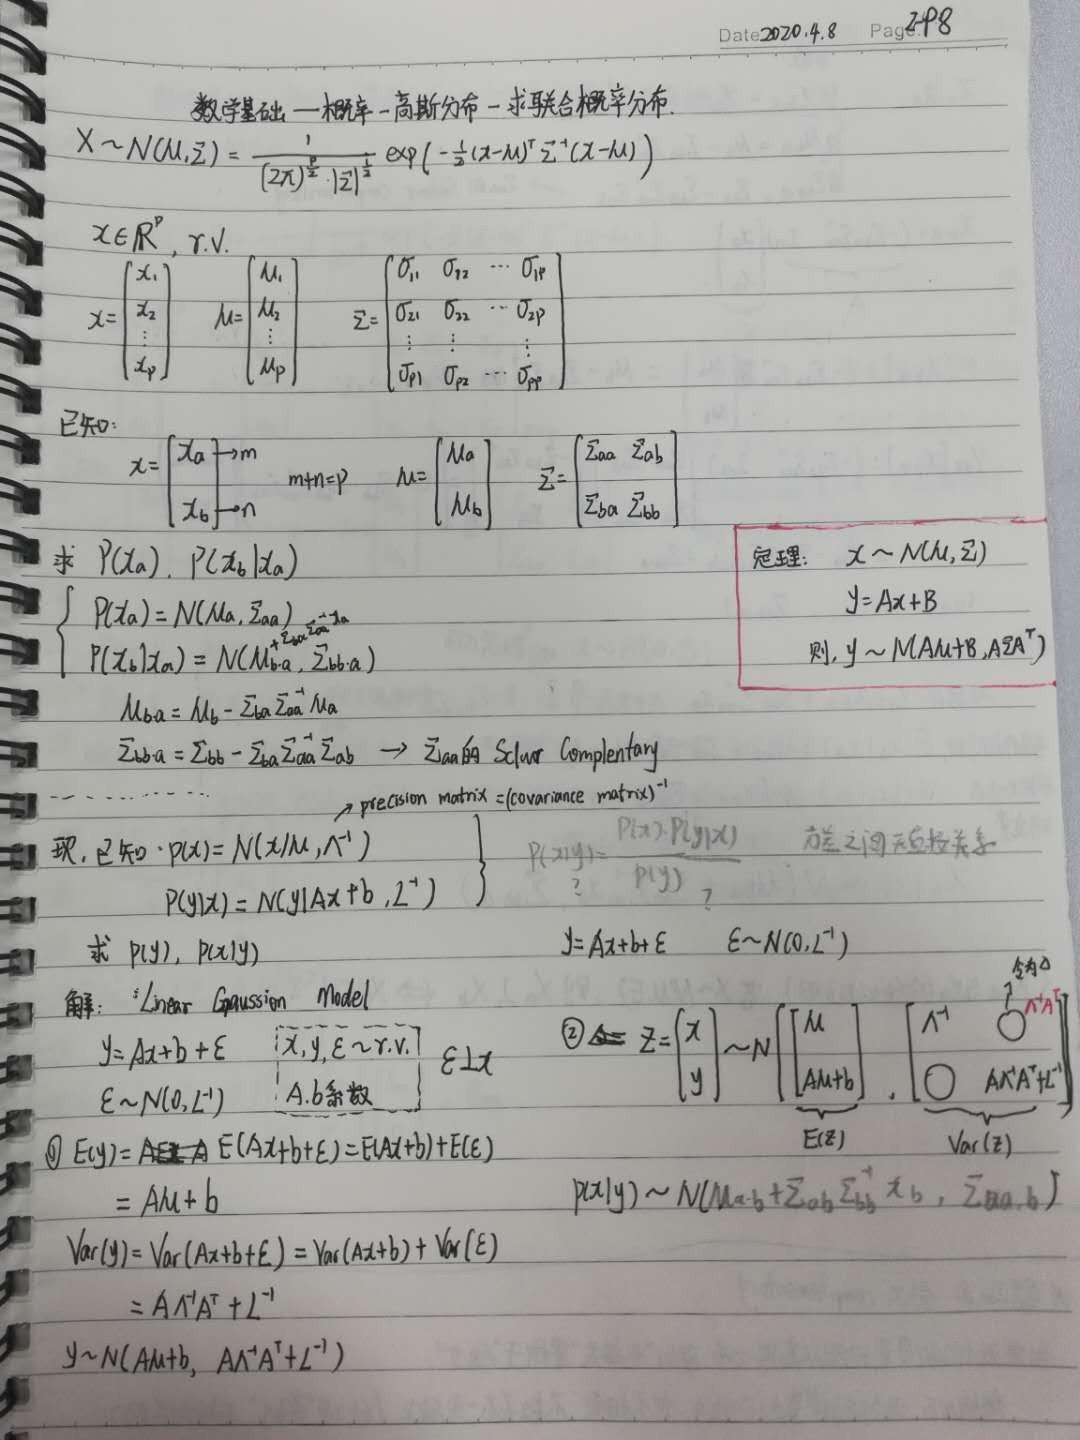 Date 2020.4.8 Page 2-P8
数学基础 — 概率 - 高斯分布 - 求联合概率分布.
X ~ N(μ,Σ) = 1/((2π)^{p/2}·|Σ|^{1/2}) exp(-1/2(x-μ)ᵀ Σ⁻¹(x-μ))
x∈ℝᵖ, r.v.
x=[x₁ x₂ ⋮ x_p] μ=[μ₁ μ₂ ⋮ μ_p] Σ=[σ₁₁ σ₁₂ ⋯ σ₁p
σ₂₁ σ₂₂ ⋯ σ₂p
⋮ ⋮ ⋮
σp₁ σp₂ ⋯ σpp]
已知:
x=[xa→m xb→n] m+n=p μ=[μa μb] Σ=[Σaa Σab
Σba Σbb]
求 P(xa). P(xb|xa)
P(xa) = N(μa, Σaa)
P(xb|xa) = N(μb·a +Σba Σaa⁻¹ xa, Σbb·a)
μb·a = μb - Σba Σaa⁻¹ μa
Σbb·a = Σbb - Σba Σaa⁻¹ Σab → Σaa的 Scluor Complentary
定理: x ~ N(μ,Σ)
y=Ax+B
则, y ~ N(Aμ+B, AΣAᵀ)
→ precision matrix = (covariance matrix)⁻¹
现, 已知· p(x) = N(x|μ, Λ⁻¹)
P(y|x) = N(y|Ax+b, L⁻¹)
P(x|y) = P(x)·P(y|x) / P(y)
? ?
方差之间无直接关系
求 p(y), p(x|y)
y=Ax+b+ε ε~N(0, L⁻¹)
解: Linear Gaussion Model
y=Ax+b+ε
ε~N(0, L⁻¹)
x, y, ε ~ r.v.
A.b系数
ε⊥x
① E(y) = E(Ax+b+ε) = E(Ax+b)+E(ε)
= Aμ+b
Var(y) = Var(Ax+b+ε) = Var(Ax+b) + Var(ε)
= AΛ⁻¹Aᵀ + L⁻¹
y~N(Aμ+b, AΛ⁻¹Aᵀ+L⁻¹)
令为Δ
Λ⁻¹Aᵀ
② Z=[x y] ~ N([μ Aμ+b], [Λ⁻¹ ○
○ AΛ⁻¹Aᵀ+L⁻¹])
E(z) Var(z)
p(x|y) ~ N(μa·b+Σab Σbb⁻¹ xb, Σaa·b)